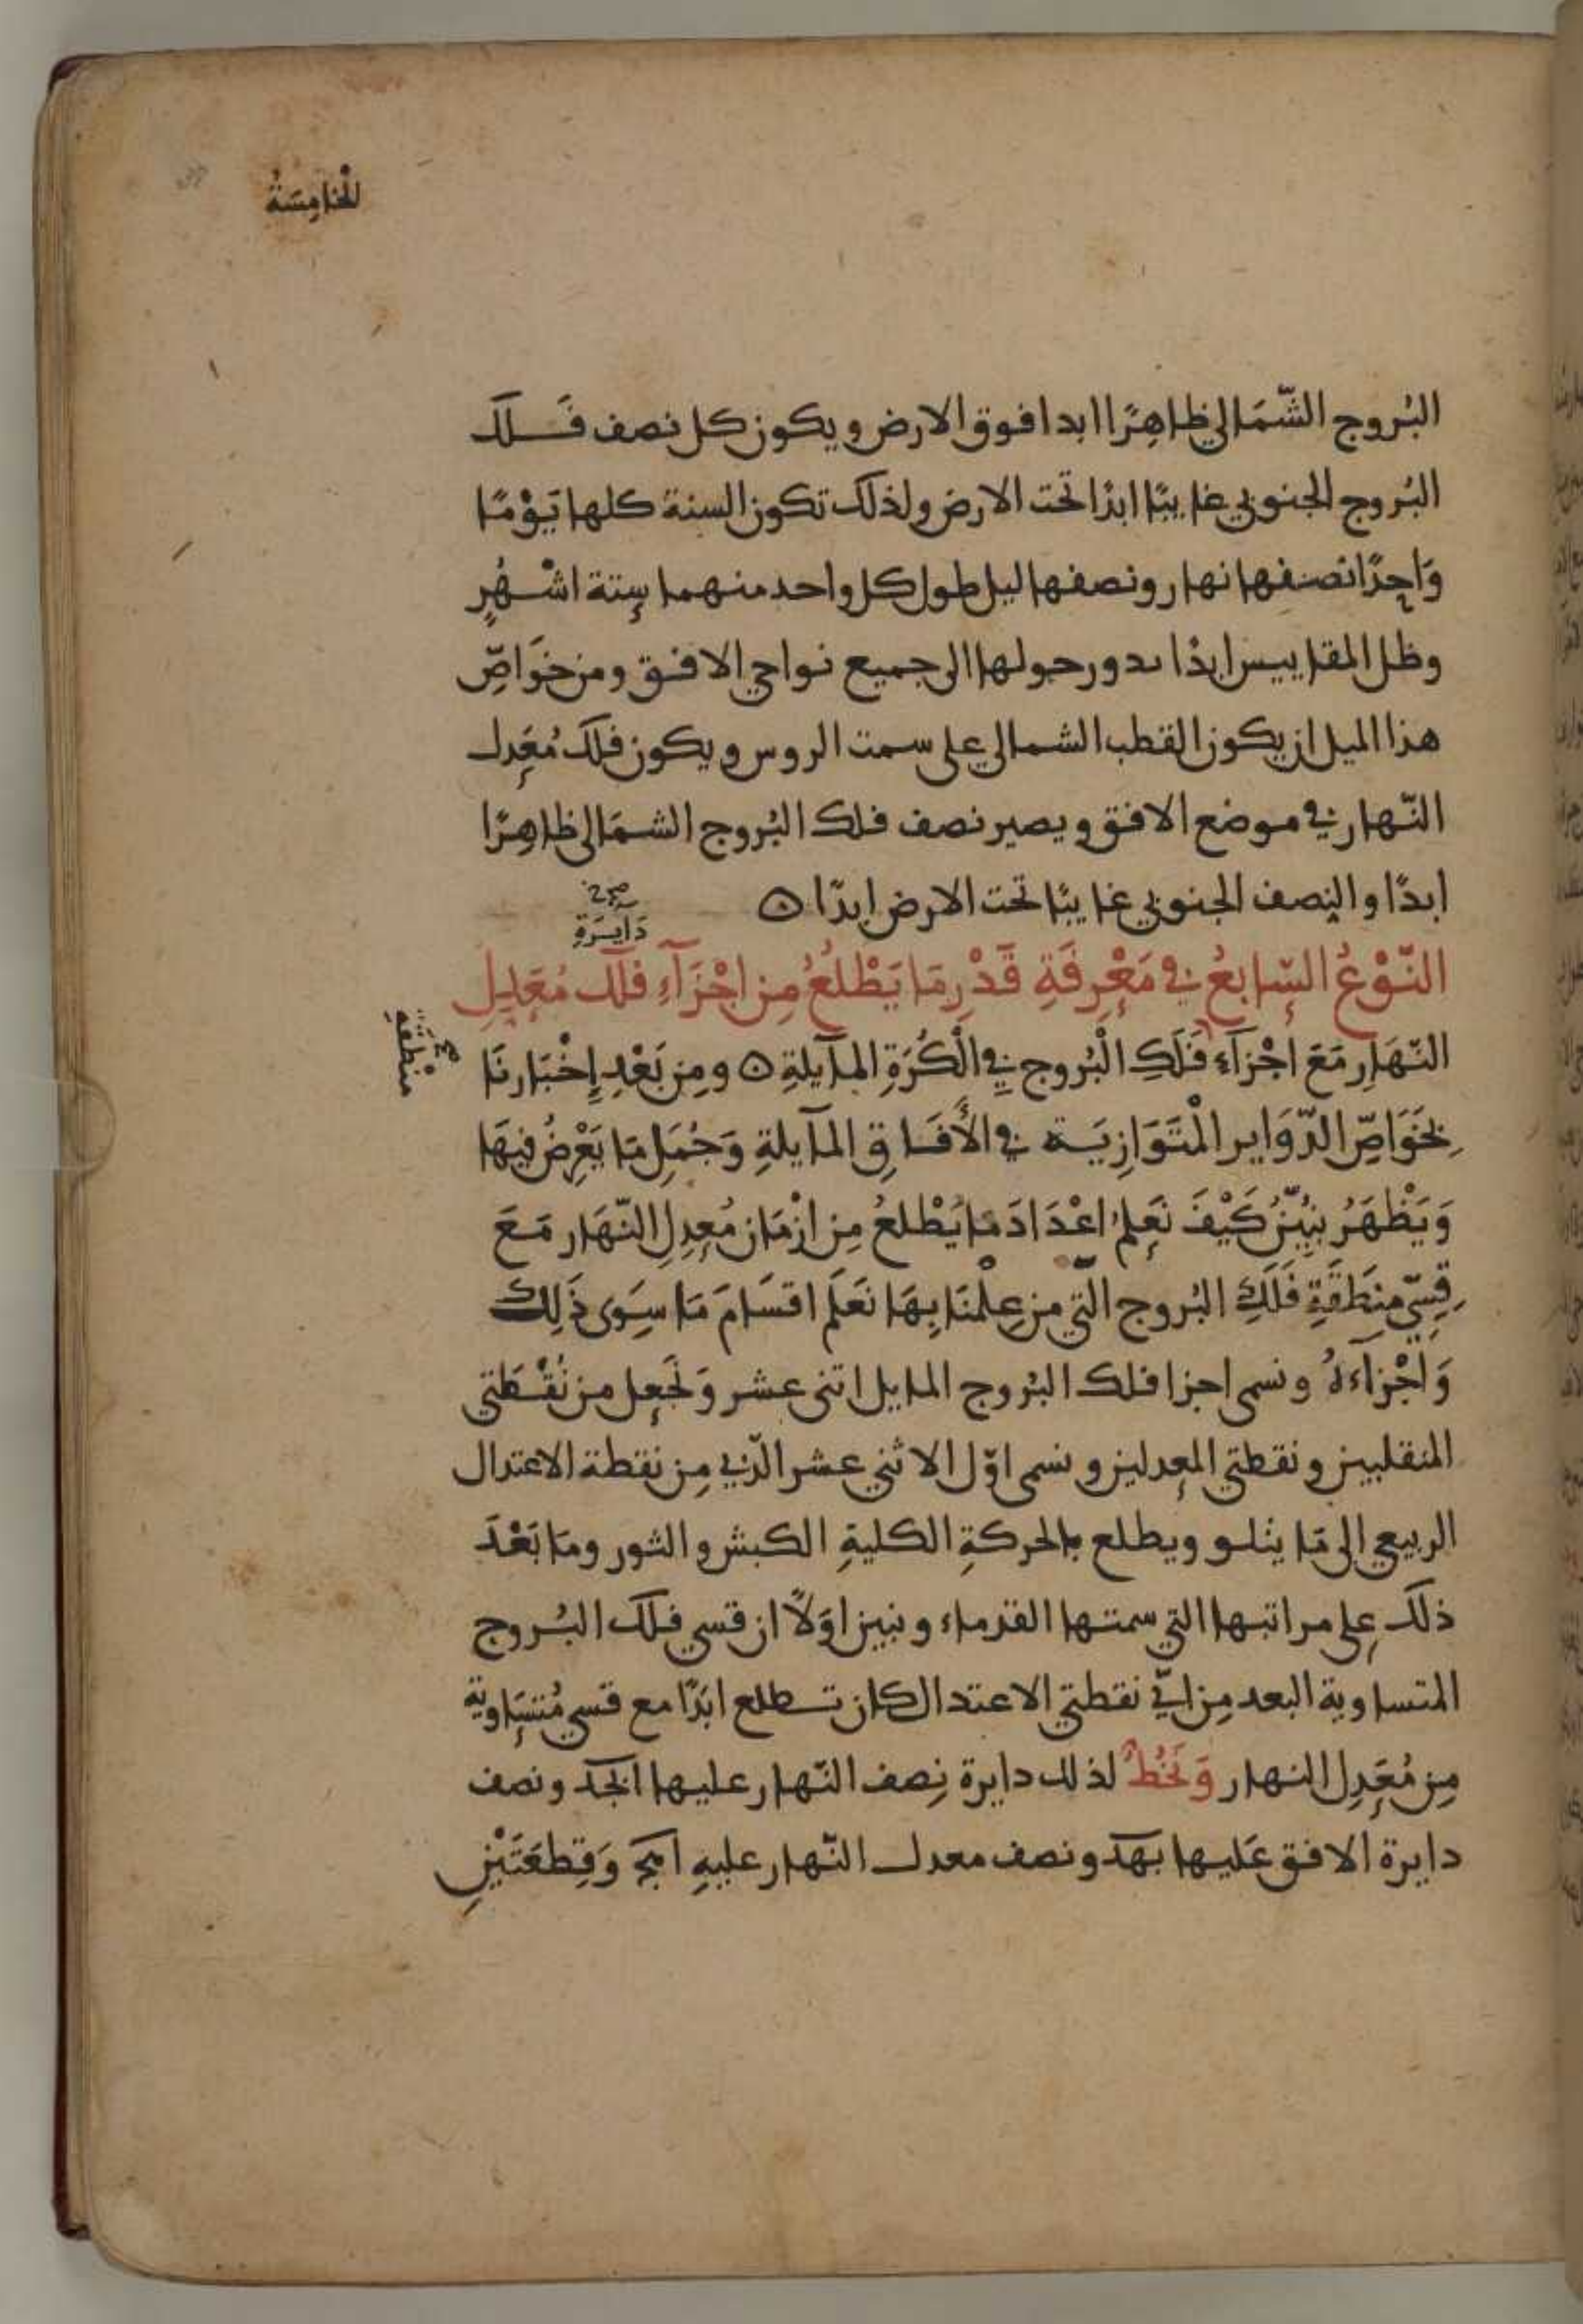 الخامسة
البُروج الشّمَالي ظاهِرًا ابدا فوق الارض ويكون كل نصف فَلك
البُروج الجنوبي غايبًا ابدًا تحت الارض ولذلك تكون السنة كلها يَوْمًا
وَاحِدًا نصفها نهار ونصفها ليل طول كل واحد منهما سِتة اشْهُرٍ
وظل المقاييس ابدًا يدور حولها الى جميع نواحي الافق ومن خَوَاصِّ
هذا الميل ان يكون القطب الشمالي على سمت الروس ويكون فلك مُعَدِل
النّهار في موضع الافق ويصير نصف فلك البُروج الشمَالى ظاهِرًا
ابدًا والنِصف الجنوبي غايبًا تحت الارض ابدًا ه
دَايرَةِ
النّوْعُ السّابعُ في مَعْرِفَةِ قَدْرِ مَا يَطْلُعُ مِن اجْزَآءِ فلَك مُعَدِلِ
النّهَارِ مَعَ اجْزآءِ فَلَكِ الْبُروج في الْكُرَةِ المآيلةِ ه ومِن بَعْدِ إِخْبَارنَا
منْطقةِ
بخَوَاصِّ الدّوَاير الْمتَوَازِيَة في الأُفَاقِ المآيلةِ وَجُمَلِ مَا يَعْرِضُ فيهَا
وَيَظْهَرُ نبُيّنُ كَيْفَ نَعلمُ اعْدَادَ مَا يَطْلعُ مِن ازْمَان مُعدِلِ النّهَار مَعَ
قِسِيّ مِنطَقَةِ فَلَكِ البُروج الّتي من عِلْمنَا بِهَا نَعَلَم اقسَامَ مَا سِوَى ذَلِك
وَاجْزآءَهُ ونسمى اجزا فلك البُروج المايل اثنى عشر وَنَجعل من نُقْطَتي
المنقلبين ونقطتي المعدلين ونسمى اوّل الاثني عشر الّذي مِن نقطة الاعتدال
الربيعي الى مَا يتلو ويطلع بالحركةِ الكليةِ الكبش والثور ومَا بَعْدَ
ذلك على مراتبها التي سمتها القدماء ونبين اوَلاً ان قسي فلك البُروج
المتساوية البعد مِن ايّ نقطتي الاعتدال كان تطلع ابَدًا مع قسي مُتسَاوية
مِن مُعَدِل النهار وَنَخُطُّ لذلك دايرة نِصف النّهار عليها ابجد ونصف
دايرة الافق عَليها بهد ونصف معدل النّهار عليهِ اهج وَقِطعَتَيْنِ